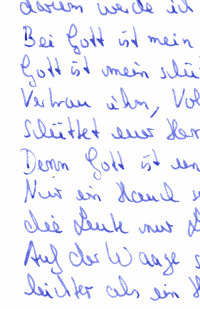 darum werde ich
Bei Gott ist mein
Gott ist mein
Vertrau ihm, Vol
schüttet euer Her
Denn Gott ist un
Nur ein Hauch
die Leute nur L
Auf der Waage s
leichter als ein H